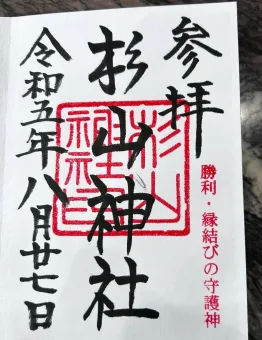 参拝
勝利・縁結びの守護神
杉山神社
令和五年八月廿七日